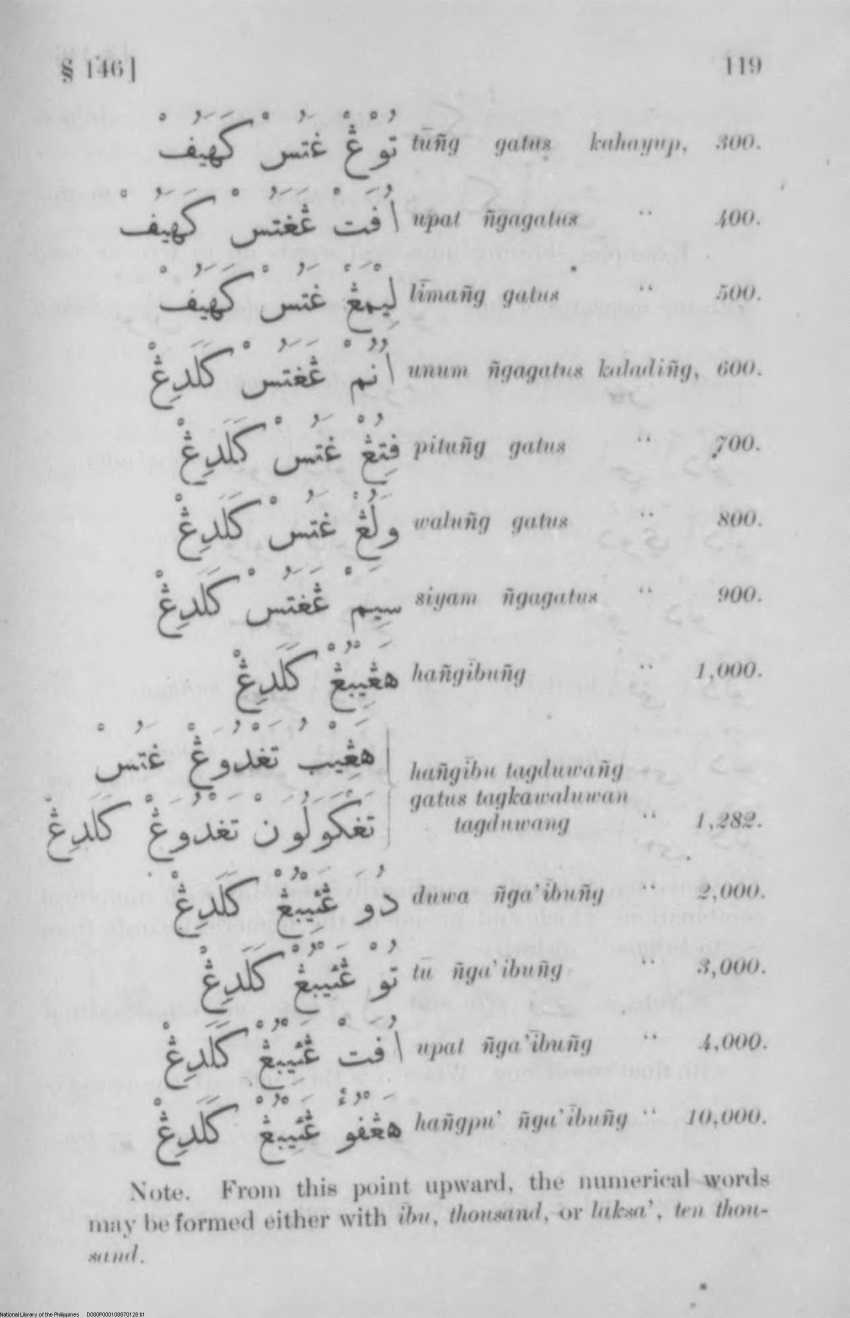 § 146]
119
تُوْڠْ غَتُسْ كَهَيُفْ tūñg gatus kahayup, 300.
اُفَتْ ڠَغَتُسْ كَهَيُفْ upat ñgagatus “ 400.
لِيْمَڠْ غَتُسْ كَهَيُفْ līmañg gatus “ 500.
اُنُمْ ڠَغَتُسْ كَلَدِڠْ unum ñgagatus kaladiñg, 600.
فِتُڠْ غَتُسْ كَلَدِڠْ pituñg gatus “ 700.
وَلُڠْ غَتُسْ كَلَدِڠْ waluñg gatus “ 800.
سِيَمْ ڠَغَتُسْ كَلَدِڠْ siyam ñgagatus “ 900.
هَڠِيْبُڠْ كَلَدِڠْ hañgībuñg “ 1,000.
هَڠِيْبُ تَغْدُوَڠْ غَتُسْ hañgību tagduwañg
gatus tagkawaluwan
تَغْكَوَلُوَنْ تَغْدُوَڠْ كَلَدِڠْ tagduwang “ 1,282.
دُوَ ڠَئِيْبُڠْ كَلَدِڠْ duwa ñga’ībuñg “ 2,000.
تُوْ ڠَئِيْبُڠْ كَلَدِڠْ tū ñga’ībuñg “ 3,000.
اُفَتْ ڠَئِيْبُڠْ كَلَدِڠْ upat ñga’ībuñg “ 4,000.
هَڠْفُوْءْ ڠَئِيْبُڠْ كَلَدِڠْ hañgpu’ ñga’ībuñg “ 10,000.
Note. From this point upward, the numerical words
may be formed either with ibu, thousand, or laksa’, ten thou-
sand.
National Library of the Philippines